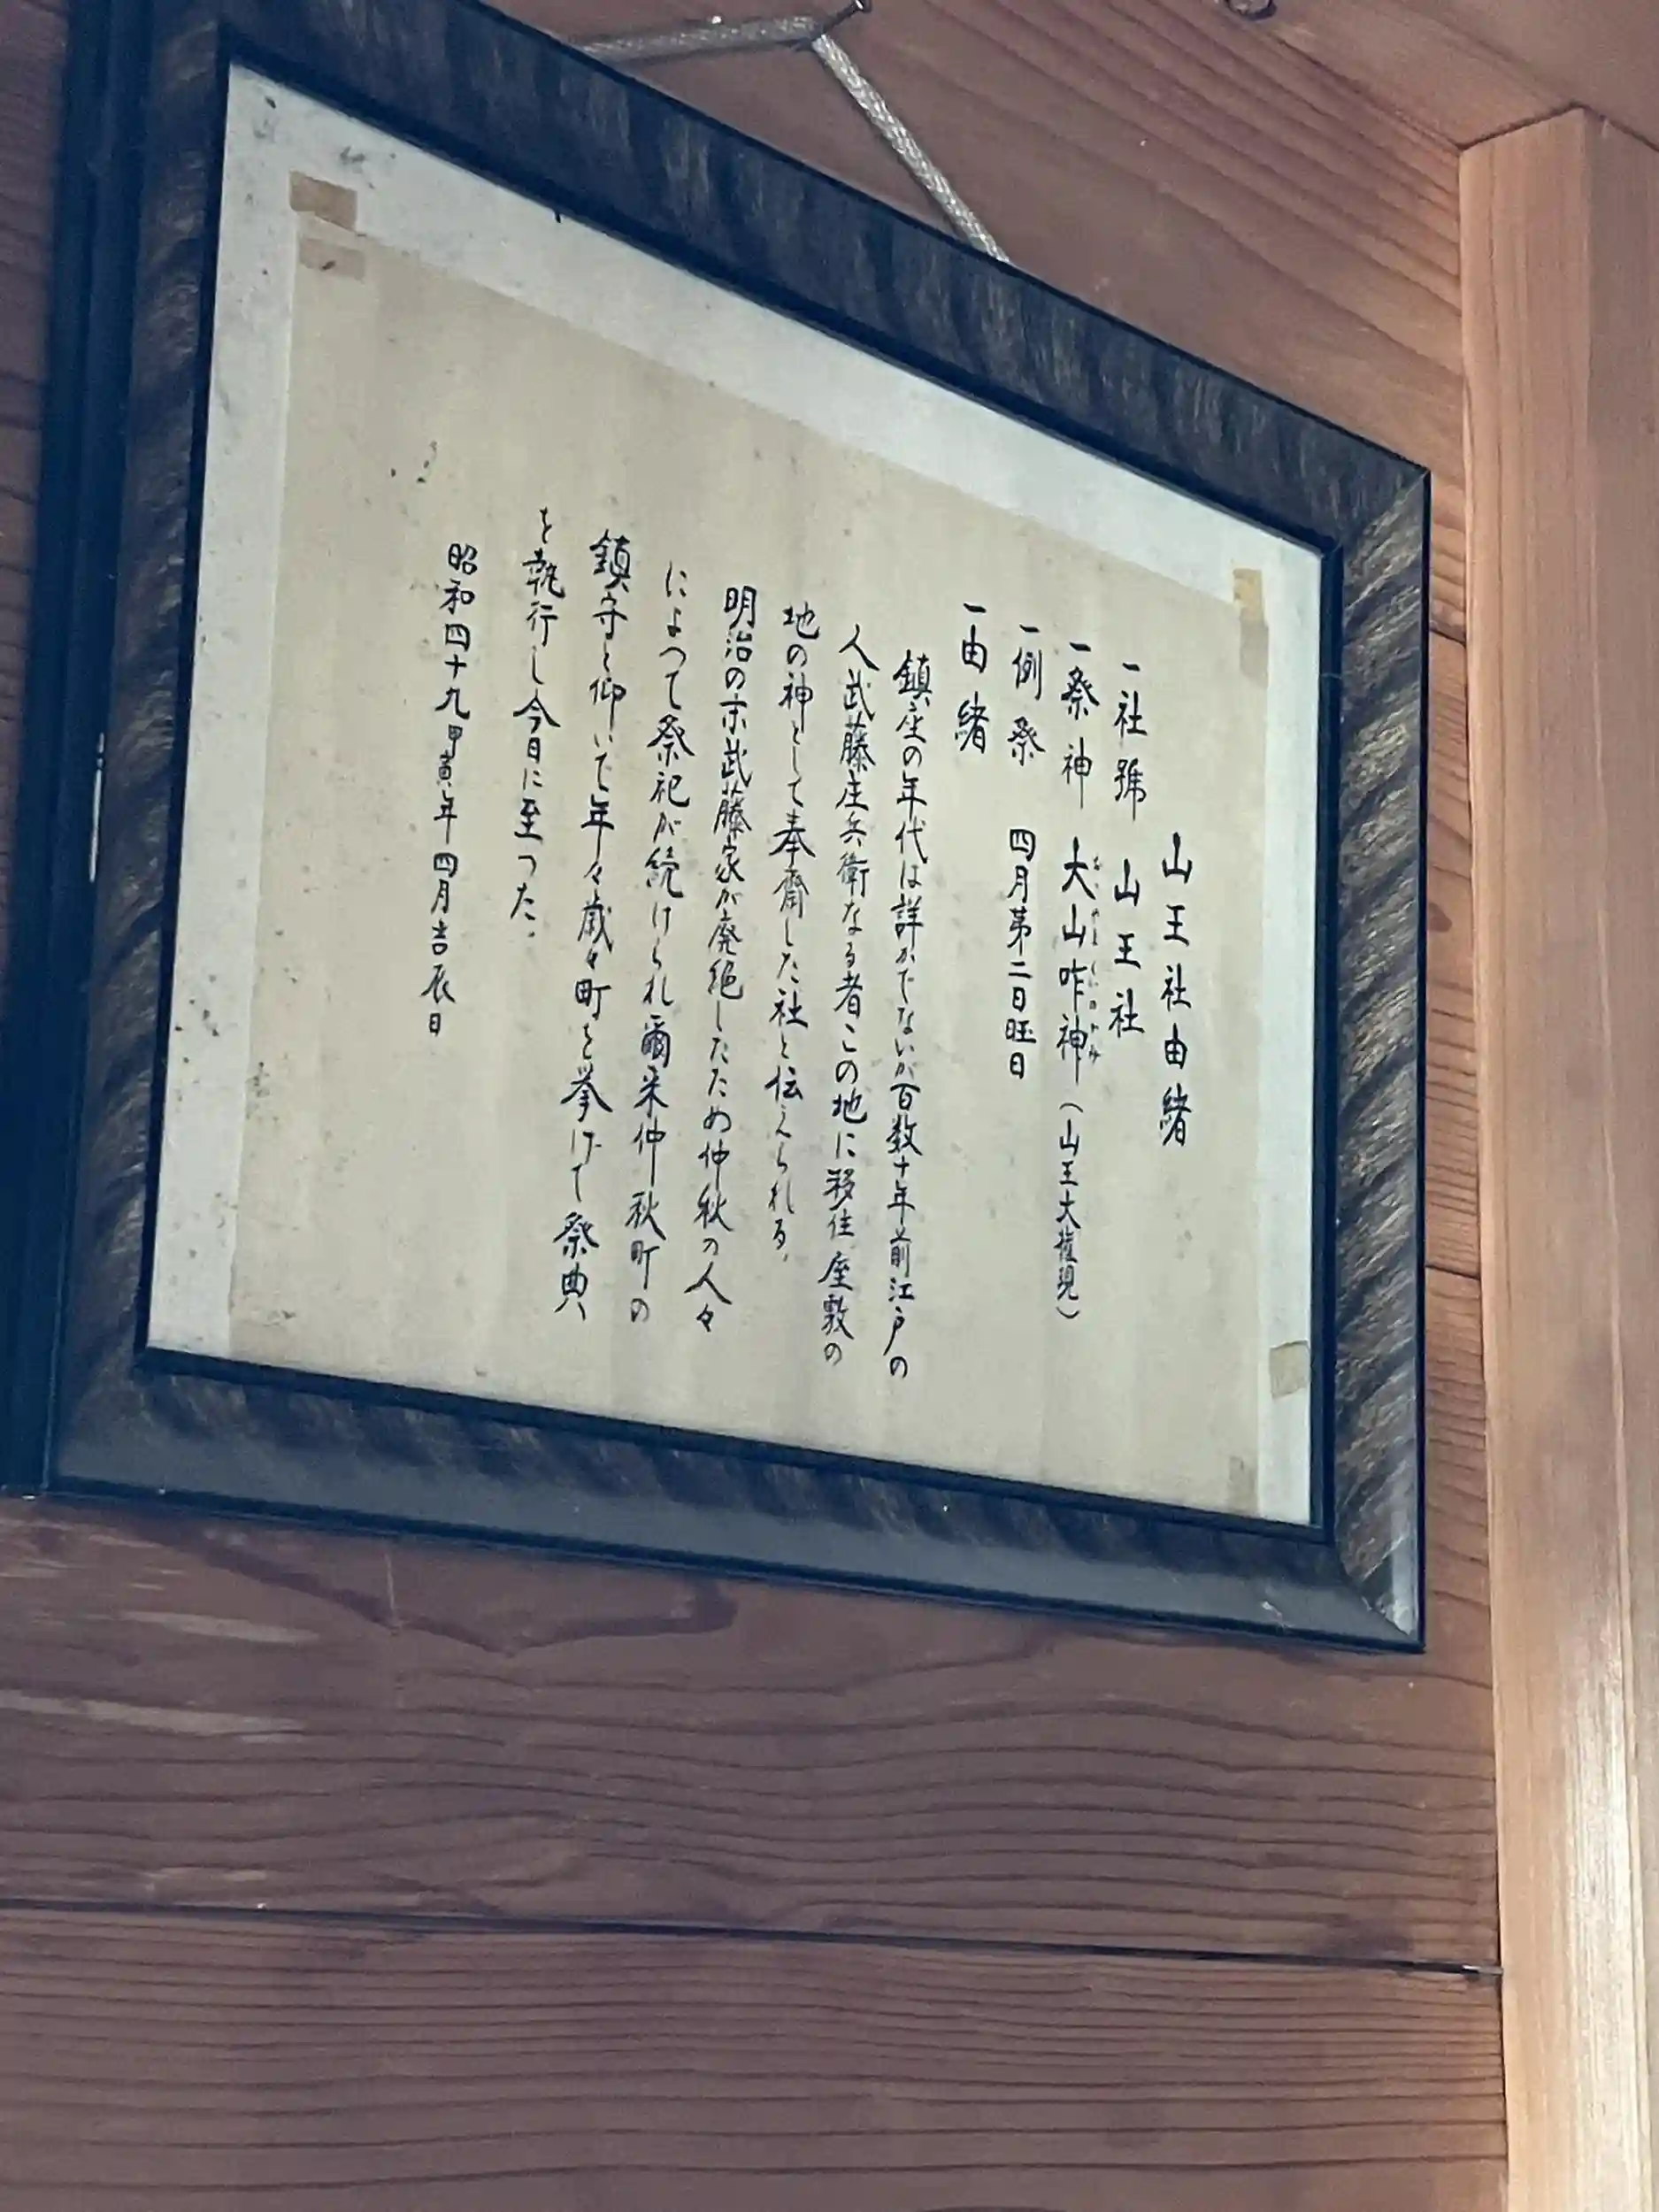 山王社由緒
一社號 山王社
一祭神 大山咋神(山王大権現)
一例祭 四月第二日曜日
一由緒
鎮座の年代は詳かでないが百数十年前江戸の
人武藤庄兵衛なる者この地に移住座敷の
地の神として奉齋した社と伝えられる、
明治の末武藤家が廃絶したため仲秋の人々
によつて祭祀が続けられ爾来仲秋町の
鎮守と仰いで年々歳々町を挙げて祭典
を執行し今日に至つた。
昭和四十九甲寅年四月吉辰日